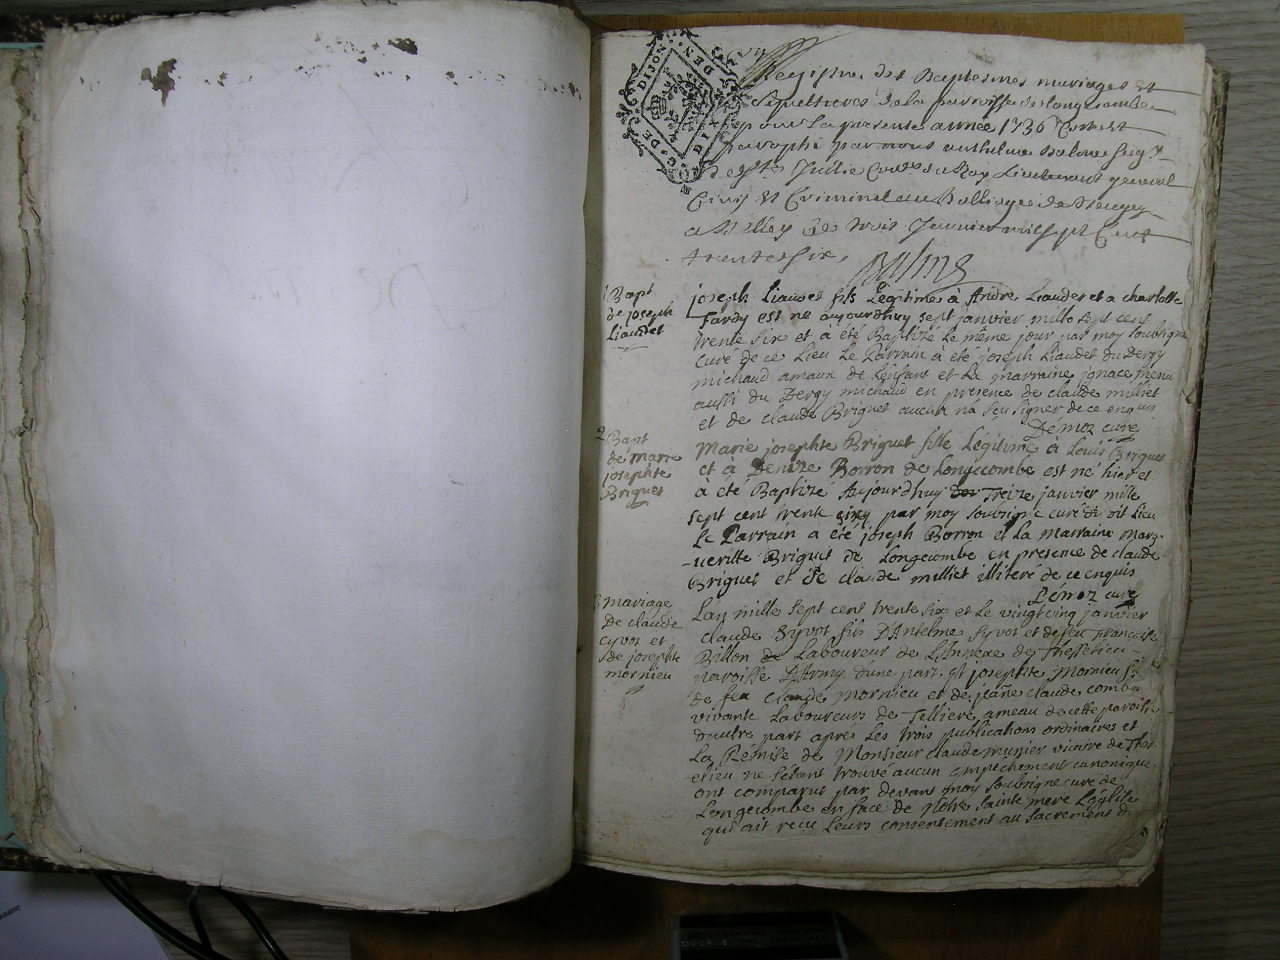 G. DE DIJON
DIX DEN.
Registre des Baptesmes mariages et
sepultures de la parroisse de longecombe
pour la presente année 1736 Cotté et
paraphé par nous anthelme
Civil et Criminel au Balliage de Beugey
a Belley le trois Janvier mil sept Cent
trente six,
1 Bapt
de joseph
Liaudet
joseph Liaudet fils Légitime à André Liaudet et a charlotte
Tardy est ne aujourdhuy sept janvier mille sept cent
trente six et à été Baptizé le même jour par moy soubsigné
curé de ce Lieu Le Parrain à été joseph Liaudet du Dergy
michaud amaux de L'enfant et Le marraine
aussi du Dergy michaud en presence de claude milliet
et de claude Briguet aucun na seu signer de ce enquis
Démoz curé
2 Bapt
de marie
josephte
Briguet
Marie josephte Briguet fille Légitime à Louis Briguet
et à Denize Borron de Longecombe est né hier et
à été Baptizé Aujourdhuy Treize janvier mille
sept cent trente six par moy soubsigné curé du dit Lieu
Le Parrain a été joseph Borron et La Marraine Marg-
-ueritte Briguet de Longecombe en presence de claude
Briguet et de claude milliet illiteré de ce enquis
Démoz curé
3 mariage
de claude
cyvot et
de josephte
mornieu
Lan mille sept cent trente six et Le vingt cinq janvier
claude Syvot fils D'Antelme Syvot et de feu Françoise
Billon Laboureur de L'Annexe de Thezelieu
paroisse D'Army d'une part, et josephte Mornieu fi
de feu claude mornieu et de jeane claude combe
vivante Laboureurs de Telliere ameau de cette paroisse
d'autre part aprés Les trois publications ordinaires et
La Rémise de Monsieur claude munier vicaire de Thez-
-elieu ne sétant trouvé aucun empéchement canonique
ont comparus par devant moy soubsigne curé de
Longecombe en face de Nôtre sainte mere Léglise
qui ait recu Leurs consentement au sacrement de